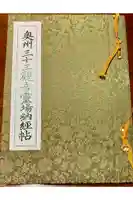 奥州三十三観音霊場納経帖